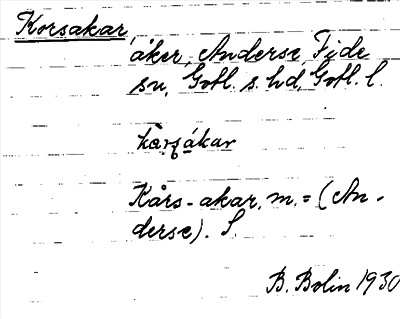 Korsakar,
åker, Anderse, Fide
sn, Gotl. s. hd, Gotl. l.
kårsákar
Kårs-akar, m. = (An-
derse). S.
B. Bolin 1930